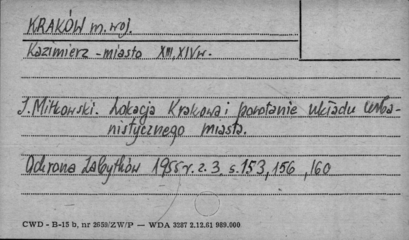 KRAKÓW m. woj.
Kazimierz - miasto XIII, XIV w.
J. Mitkowski. Lokacja Krakowa i powstanie układu urba-
nistycznego miasta.
Ochrona Zabytków 1955 r. z. 3, s. 153, 156, 160
CWD - B-15 b, nr 2659/ZW/P — WDA 3287 2.12.61 989.000